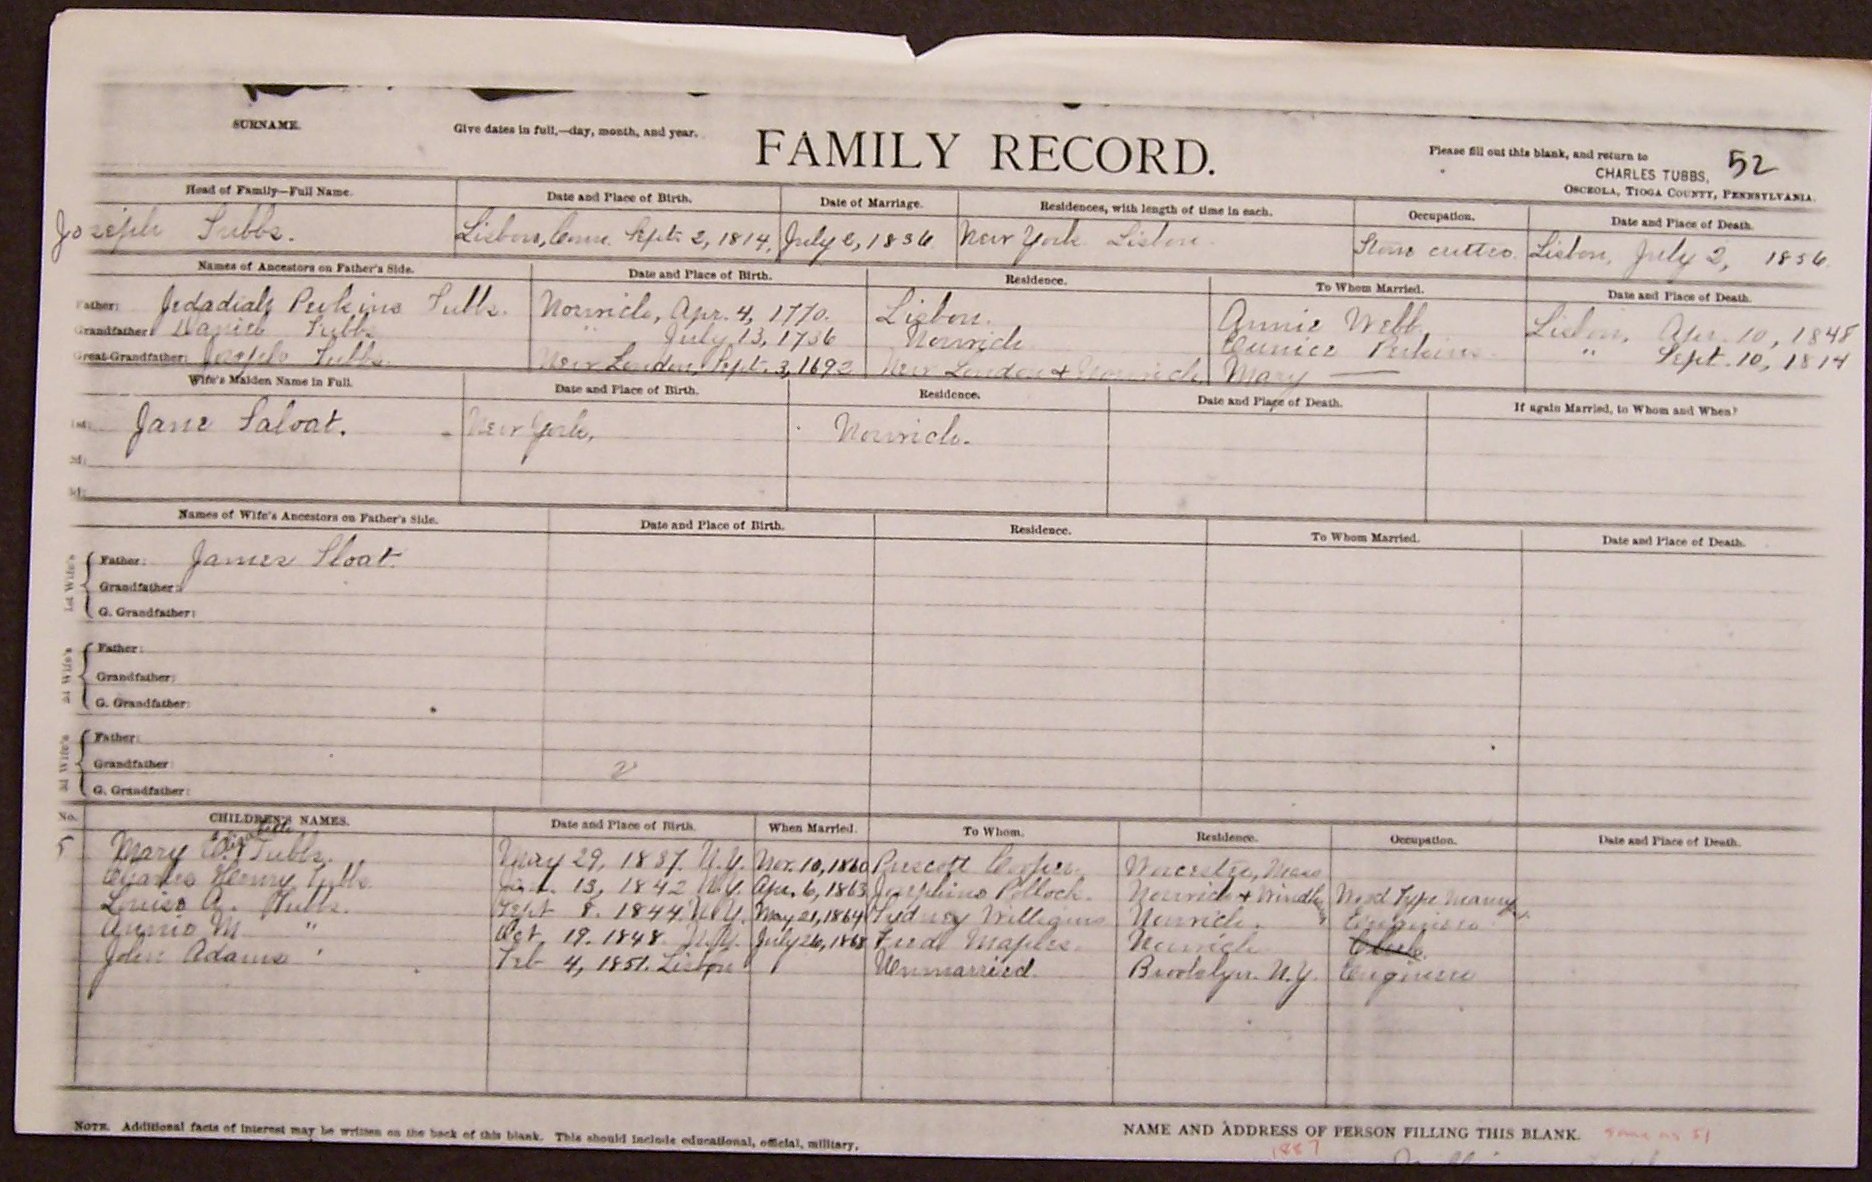 SURNAME.
Give dates in full,—day, month, and year.
FAMILY RECORD.
Please fill out this blank, and return to
CHARLES TUBBS,
OSCEOLA, TIOGA COUNTY, PENNSYLVANIA.
52
Head of Family—Full Name. Date and Place of Birth. Date of Marriage. Residences, with length of time in each. Occupation. Date and Place of Death.
Joseph Tubbs. Lisbon, Conn. Sept. 2, 1814. July 2, 1836 New York Lisbon. Stone cutter. Lisbon, July 2, 1856.
Names of Ancestors on Father's Side. Date and Place of Birth. Residence. To Whom Married. Date and Place of Death.
Father: Jedadiah Perkins Tubbs. Norwich, Apr. 4, 1770. Lisbon. Annie Webb. Lisbon, Apr. 10, 1848
Grandfather Daniel Tubbs. " July 13, 1736 Norwich Eunice Perkins. " Sept. 10, 1814
Great-Grandfather: Joseph Tubbs. New London, Sept. 3, 1692 New London & Norwich Mary —
Wife's Maiden Name in Full. Date and Place of Birth. Residence. Date and Place of Death. If again Married, to Whom and When?
1st: Jane Saloat. New York, Norwich.
2d:
3d:
Names of Wife's Ancestors on Father's Side. Date and Place of Birth. Residence. To Whom Married. Date and Place of Death.
1st Wife's
Father: James Sloat.
Grandfather:
G. Grandfather:
2d Wife's
Father:
Grandfather:
G. Grandfather:
3d Wife's
Father:
Grandfather
G. Grandfather:
No. CHILDREN'S NAMES. Date and Place of Birth. When Married. To Whom. Residence. Occupation. Date and Place of Death.
5 Mary Elizabeth Tubbs. May 29, 1837. N.Y. Nov. 10, 1860 Prescott Cooper. Worcester, Mass
Charles Henry Tubbs 13, 1842 N.Y. Apr. 6, 1863 Josephine Pollock. Norwich & Windham Wood Type
Louise A. Tubbs. Sept 8. 1844. N.Y. May 21, 1864 Sidney Williams Norwich. Engineer
Annie M " Oct 19. 1848. N.Y. July 26, 1868 Fred Maples. Norwich Clerk
John Adams " Feb 4, 1851. Lisbon Unmarried. Brooklyn. N.Y. Engineer
NOTE. Additional facts of interest may be written on the back of this blank. This should include educational, official, military,
NAME AND ADDRESS OF PERSON FILLING THIS BLANK. same as 51
1887